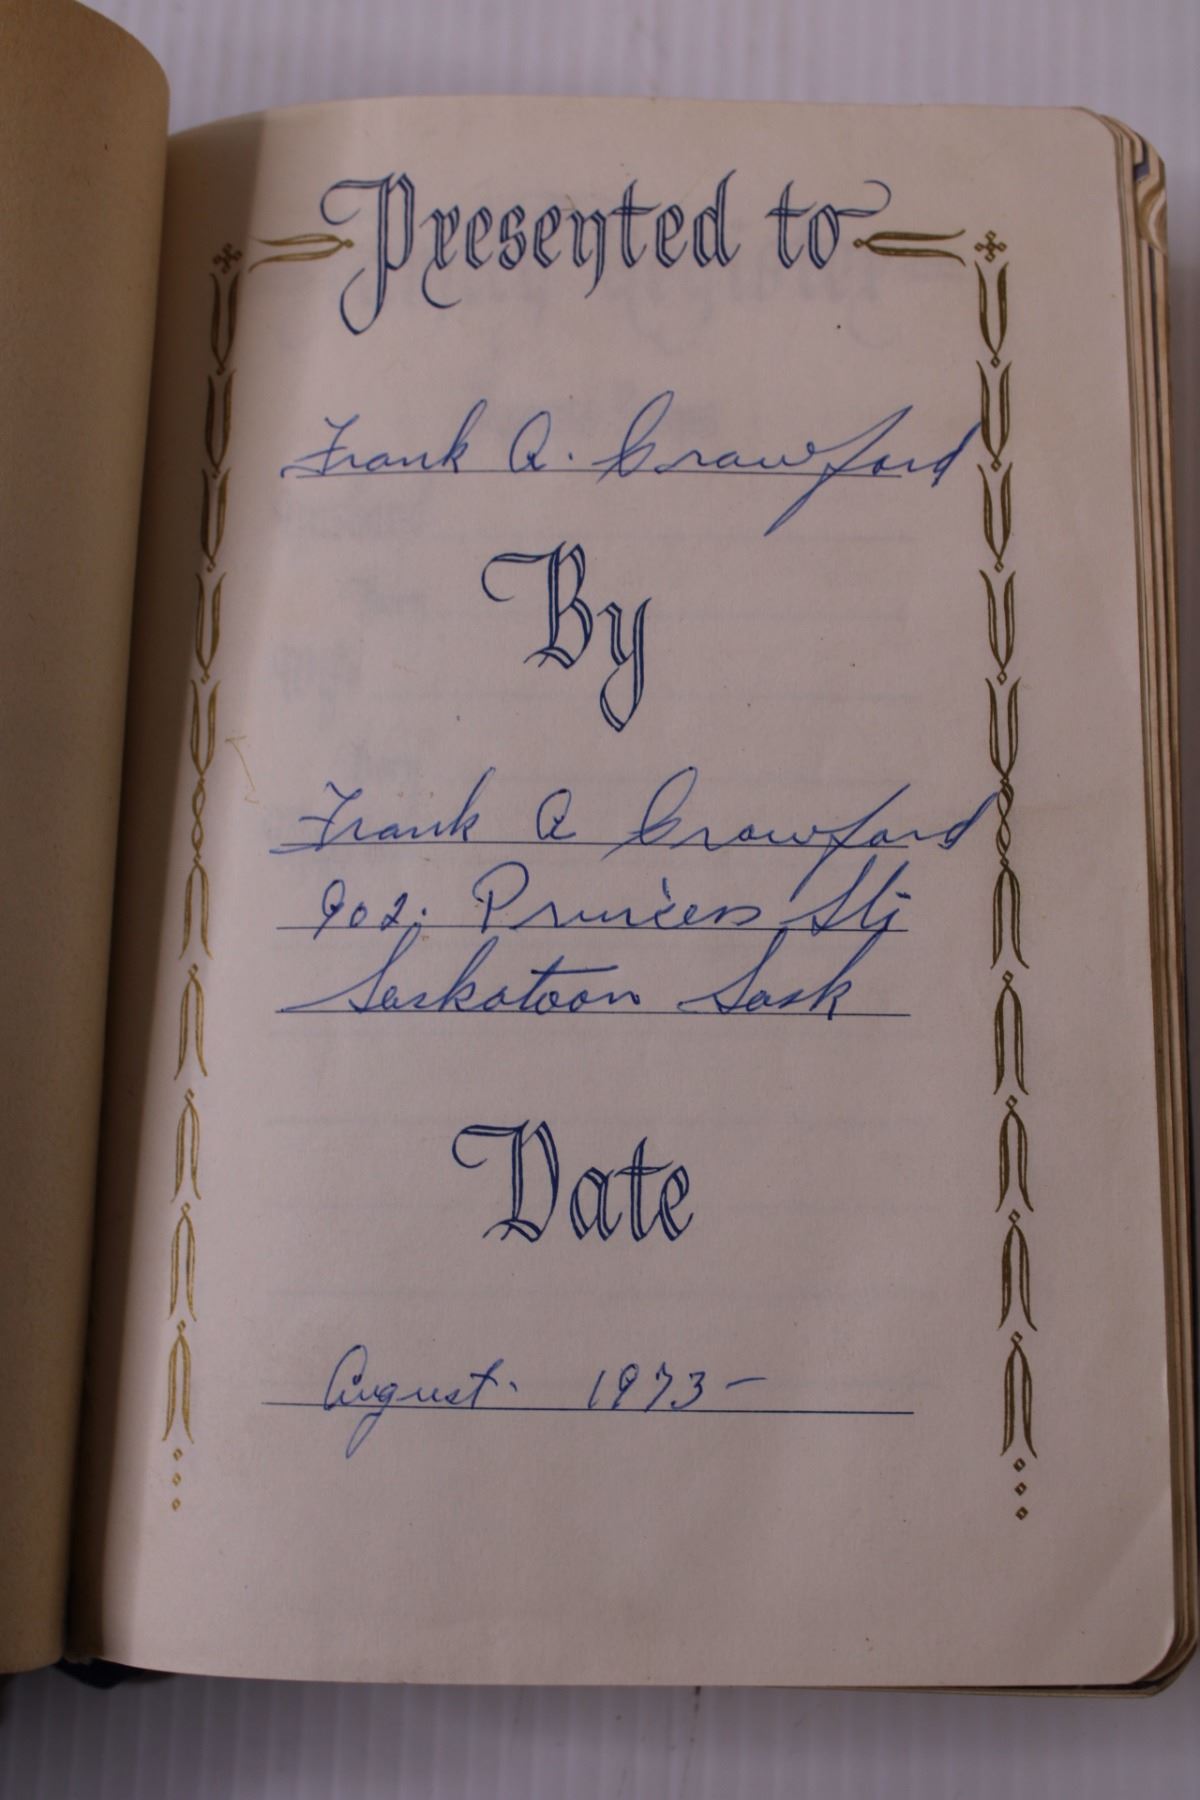 Presented to
Frank A. Crawford
By
Frank A Crawford
902. Princess St;
Saskatoon Sask
Date
August. 1973-